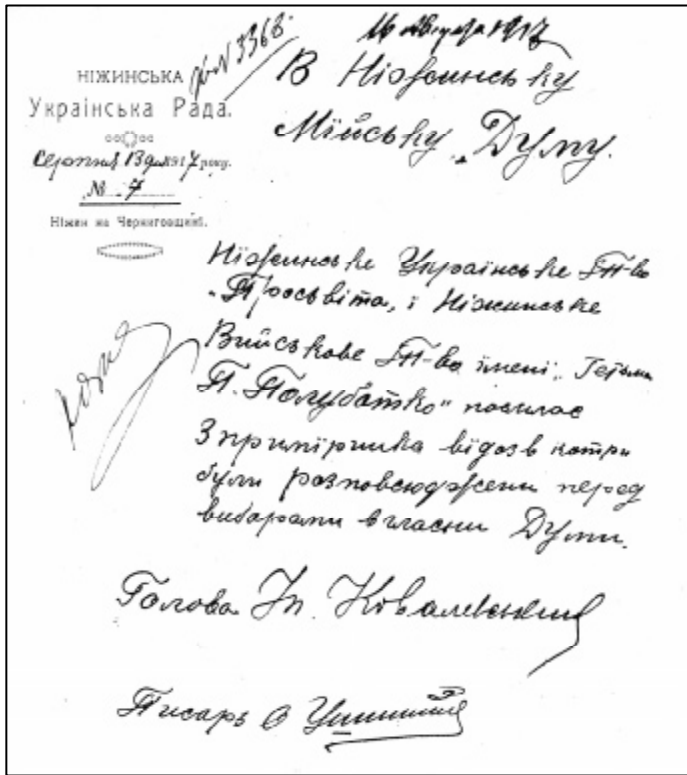 16 Августа 1917
№ 3368.
НІЖИНСЬКА
Українська Рада.
Серпня 13 дня 1917 року.
№ 7
Ніжин на Черниговщині.
В Ніженську
Мійську Думу.
Ніженське Українське Т-во
„Просьвіта„ і Ніжинське
Військове Т-во імені „Гетьма
П. Полуботко" посилає
3 примірника відозв котри
були розповсюджени перед
виборами в гласни Думи.
Голова Ковалевський
Писарь